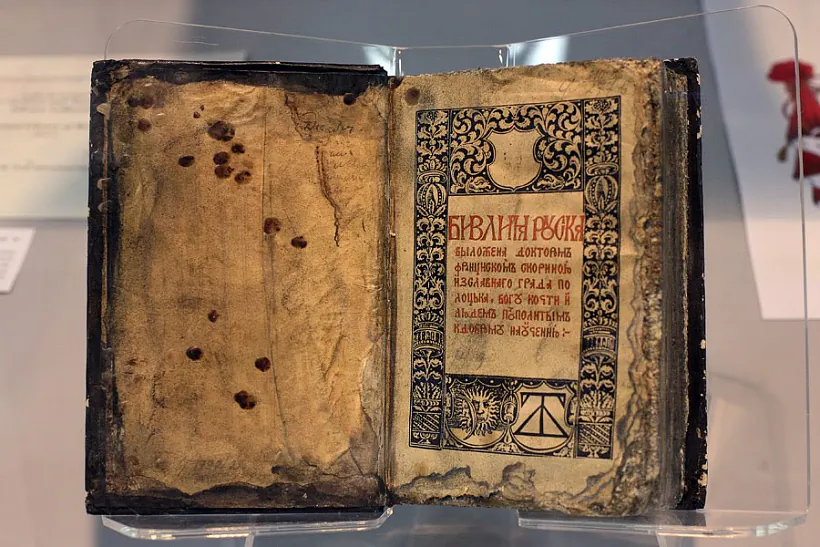 БИВЛИѦ РУСКА
ВЫЛОЖЕНА ДОКТОРОМЪ
ФРАНЦИСКОМЪ СКОРИНОЮ
ИЗСЛАВНАГО ГРАДА ПО
ЛОЦЬКА, БОГУ КОЧТИ И
ЛЮДЕМЪ ПОСПОЛИТЫМЪ
КДОБРОМУ НАУЧЕНИЮ :~